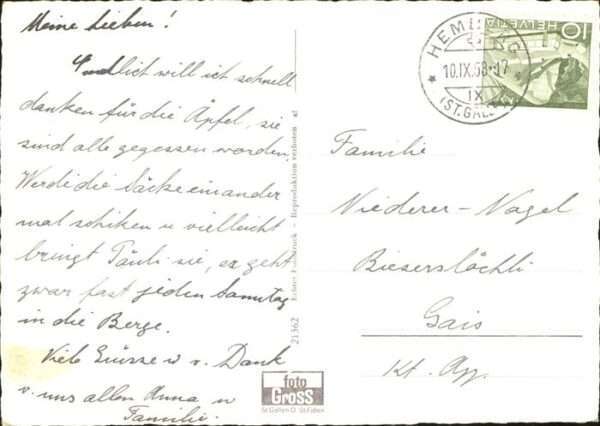 Meine Lieben!
Endlich will ich schnell
danken für die Äpfel, sie
sind alle gegessen worden.
Werde die Säcke einander
mal schiken u vielleicht
bringt Täuli sie, es geht
zwar fast jeden Samstag
in die Berge.
Viele Grüsse u v. Dank
v. uns allen Anna u
Familie.
HEMBERG
10.IX.58-17
IX
(ST.GALLEN)
10 HELVETIA
Familie
Niederer-Nagel
Gais
Kt. App.
21362 Echter Fotodruck - Reproduktion verboten
foto
GROSS
St.Gallen O St.Fiden